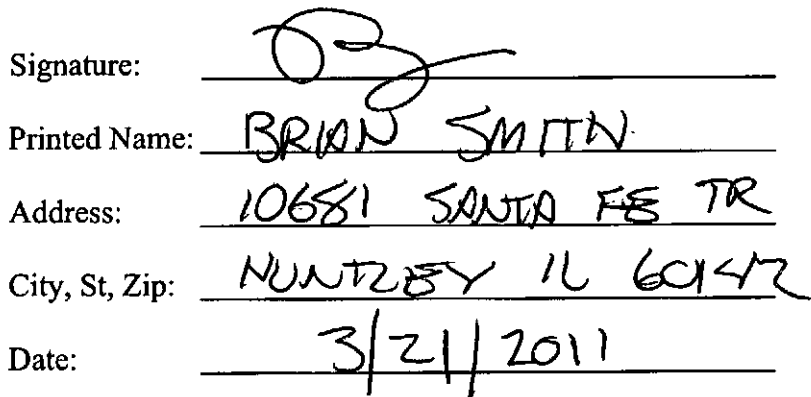 Signature:
Printed Name: BRIAN SMITH
Address: 10681 SANTA FE TR
City, St, Zip: HUNTLEY IL 60142
Date: 3/21/2011